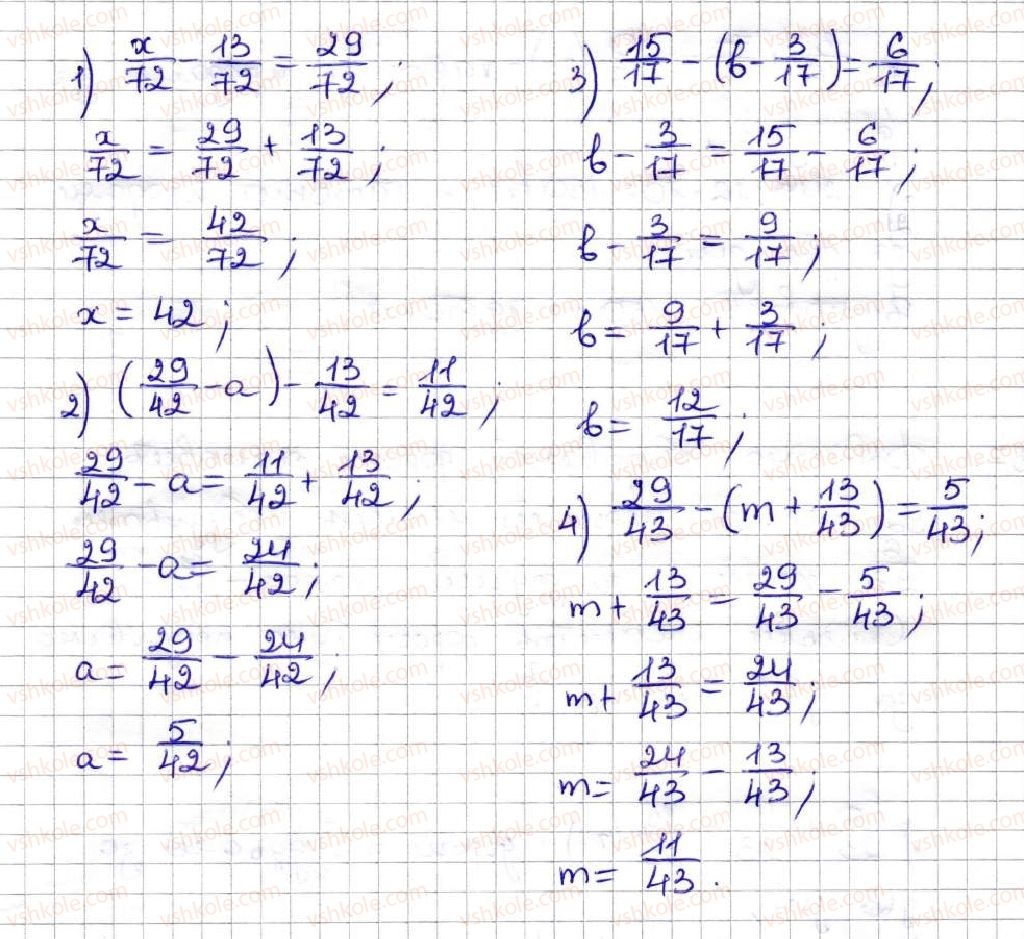 1) x/72 - 13/72 = 29/72;
x/72 = 29/72 + 13/72;
x/72 = 42/72;
x = 42;
2) (29/42 - a) - 13/42 = 11/42;
29/42 - a = 11/42 + 13/42;
29/42 - a = 24/42;
a = 29/42 - 24/42;
a = 5/42;
3) 15/17 - (b - 3/17) = 6/17;
b - 3/17 = 15/17 - 6/17;
b - 3/17 = 9/17;
b = 9/17 + 3/17;
b = 12/17;
4) 29/43 - (m + 13/43) = 5/43;
m + 13/43 = 29/43 - 5/43;
m + 13/43 = 24/43;
m = 24/43 - 13/43;
m = 11/43.
vshkole.com